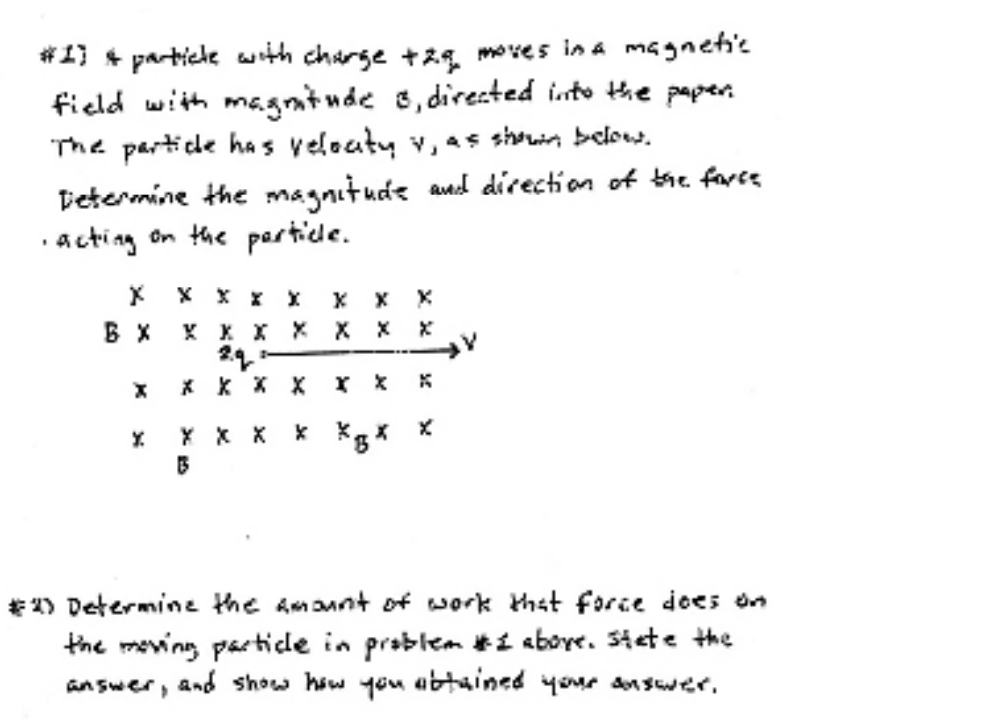 #1) A particle with charge +2q moves in a magnetic
field with magnitude B, directed into the paper.
The particle has velocity v, as shown below.
Determine the magnitude and direction of the force
acting on the particle.
X X X X X X X X
B X X X X X X X X
2q V
X X X X X X X X
X X X X X X B X X
B
#2) Determine the amount of work that force does on
the moving particle in problem #1 above. State the
answer, and show how you obtained your answer.